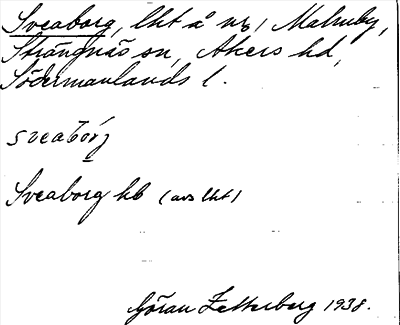 Sveaborg, lht å nr 1 Malmby,
Strängnäs sn, Åkers hd,
Södermanlands l.
sveabórj
Sveaborg hb (avs lht)
Göran Zetterberg 1938.